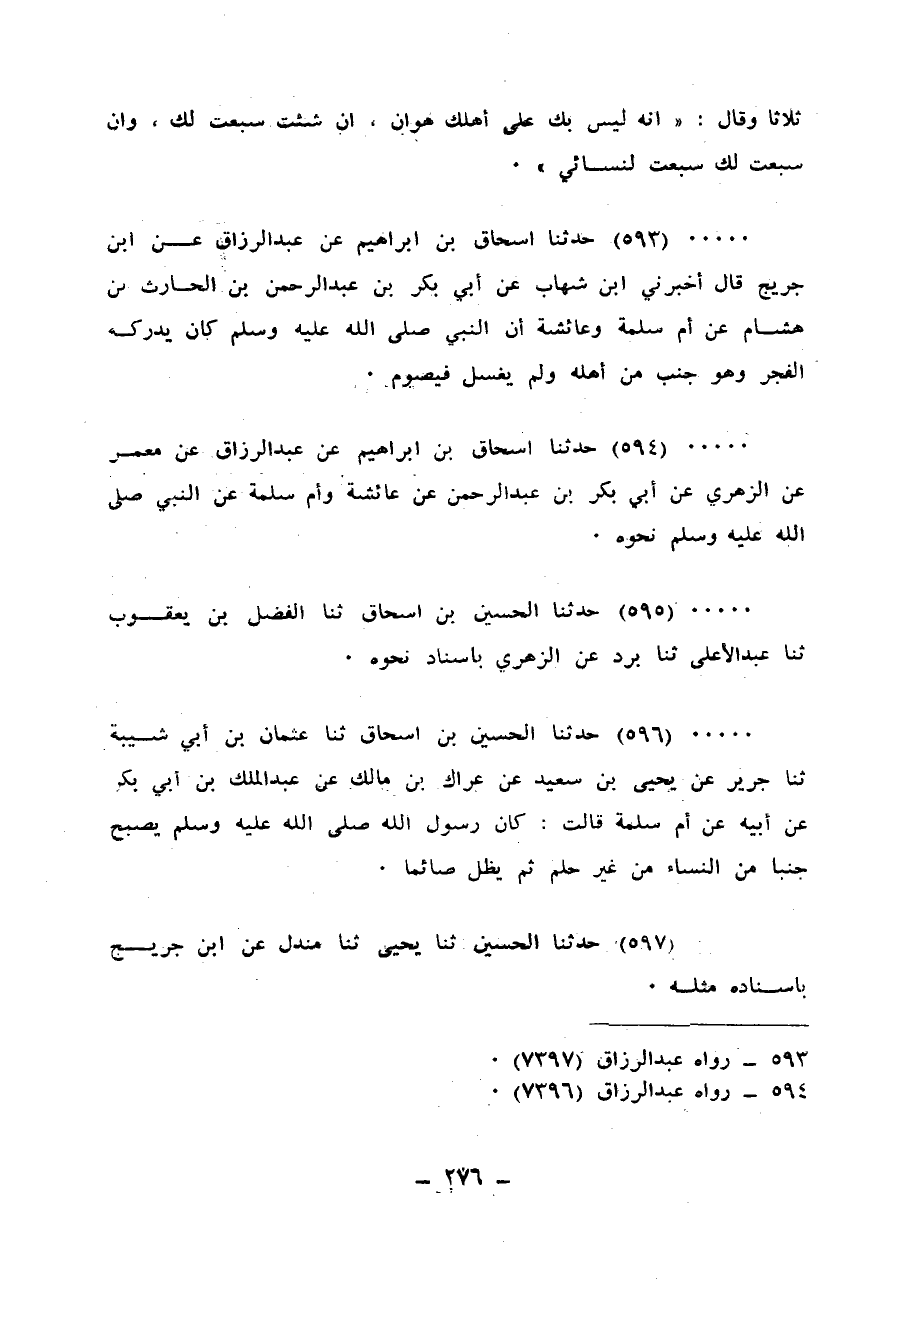 ثلاثا وقال : « انه ليس بك على أهلك هوان ، ان شئت سبعت لك ، وان
سبعت لك سبعت لنسائي » ٠
٠٠٠٠٠ (٥٩٣) حدثنا اسحاق بن ابراهيم عن عبدالرزاق عن ابن
جريج قال أخبرني ابن شهاب عن أبي بكر بن عبدالرحمن بن الحارث بن
هشام عن أم سلمة وعائشة أن النبي صلى الله عليه وسلم كان يدركه
الفجر وهو جنب من أهله ولم يغسل فيصوم ٠
٠٠٠٠٠ (٥٩٤) حدثنا اسحاق بن ابراهيم عن عبدالرزاق عن معمر
عن الزهري عن أبي بكر بن عبدالرحمن عن عائشة وأم سلمة عن النبي صلى
الله عليه وسلم نحوه ٠
٠٠٠٠٠ (٥٩٥) حدثنا الحسين بن اسحاق ثنا الفضل بن يعقوب
ثنا عبدالأعلى ثنا برد عن الزهري باسناد نحوه ٠
٠٠٠٠٠ (٥٩٦) حدثنا الحسين بن اسحاق ثنا عثمان بن أبي شيبة
ثنا جرير عن يحيى بن سعيد عن عراك بن مالك عن عبدالملك بن أبي بكر
عن أبيه عن أم سلمة قالت : كان رسول الله صلى الله عليه وسلم يصبح
جنبا من النساء من غير حلم ثم يظل صائما ٠
(٥٩٧) حدثنا الحسين ثنا يحيى ثنا مندل عن ابن جريج
باسناده مثله ٠
٥٩٣ ــ رواه عبدالرزاق (٧٣٩٧) ٠
٥٩٤ ــ رواه عبدالرزاق (٧٣٩٦) ٠
ــ ٢٧٦ ــ